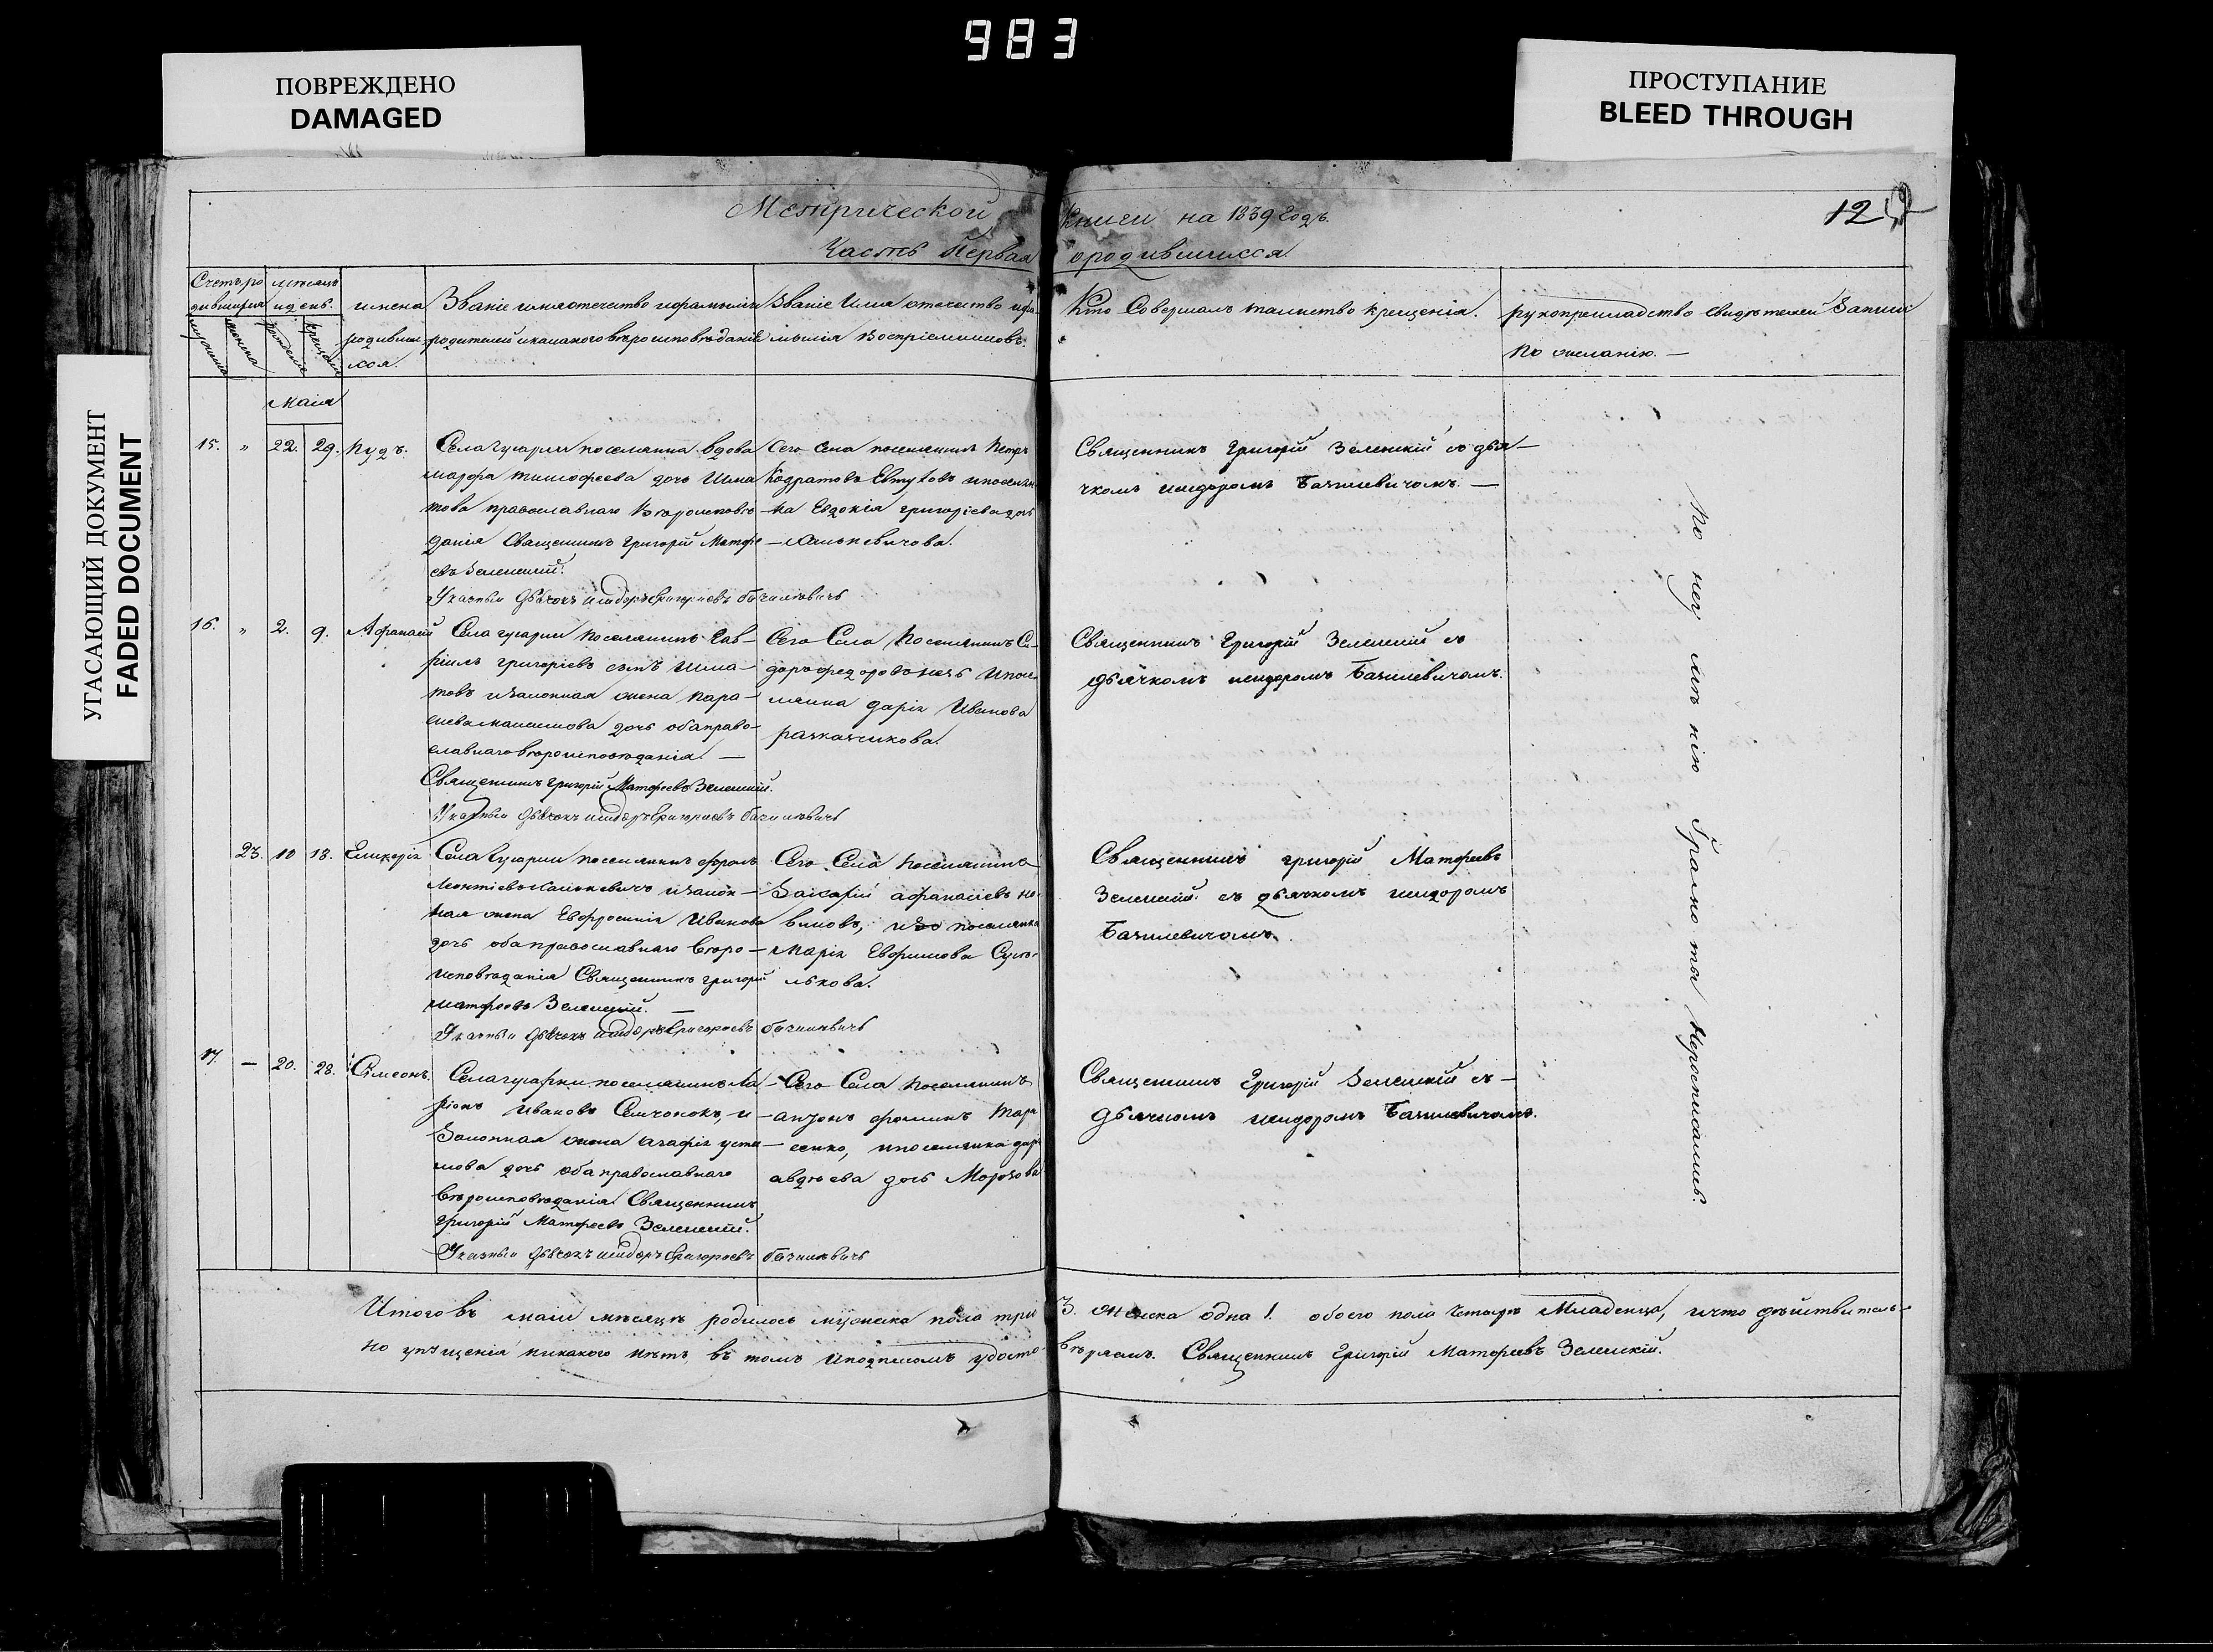 983
ПОВРЕЖДЕНО
DAMAGED
ПРОСТУПАНИЕ
BLEED THROUGH
УГАСАЮЩИЙ ДОКУМЕНТ
FADED DOCUMENT
Метрической книги на 1839 годъ.
12
Часть Первая о родившихся.
Счетъ ро
дившихся
мѣсяцъ
и день.
мужеска
женска
рожденія
крещенія
имена
родивших
хся.
Званіе имя отечество и фамилія
родителей и какаго вѣроисповѣданія
Званіе Имя отечество и фа
милія Воспріемниковъ.
Кто Совершалъ таинство крещенія.
рукоприкладство свидѣтелей Записи
по желанію. —
Маія
15. „ 22. 29. Пудъ.
Села гусарки поселянка вдова
марфа тимофеева дочь Шма
това православнаго вѣроисповѣ
данія Священникъ Григорій Матфе
евъ Зеленский.
Указный Дьячокъ исидоръ Григориевъ базилевичъ
Сего Села поселянинъ Петръ
Кодратовъ Евтуховъ и поселян
ка Евдокія григоріева дочь
Священникъ Григорій Зеленскій съ дья—
чкомъ исидоромъ Базилевичомъ. —
16. „ 2. 9. Афанасій
Села гусарки поселянинъ Гав—
ріилъ григоріевъ сынъ Шма—
товъ и Законная жена пара—
скева максимова дочь оба право—
славнаго вѣроисповѣданія. —
Священникъ Григорій Матфеевъ Зеленский.
Указный Дьячокъ исидоръ Григориевъ базилевичъ
Сего Села Поселянинъ Си—
доръ федоровъ и посе
лянка дарія Иванова
разказчикова.
Священникъ Григорій Зеленскій съ
дьячкомъ исидоромъ Базилевичомъ.
23. 10 18. Гликерія
Села Гусарки поселянинъ фролъ
Леонтіевъ и закон—
ная жена Евфросинія Иванова
дочь оба православнаго вѣро—
исповѣданія Священникъ григорій
матфеевъ Зеленский. —
Указный Дьячокъ исидоръ Григориевъ базилевичъ
Сего Села поселянинъ
Захарій афанасіевъ но
виковъ, и поселянка
марія Евфимова
Священникъ григорій Матфеевъ
Зеленский съ дьячкомъ исидоромъ
Базилевичомъ.
17. — 20. 28. Сімеонъ.
Села гусарки поселянинъ Ла—
ріонъ Ивановъ Семчонокъ, и
Законная жена агафія усти
мова дочь оба православнаго
вѣроисповѣданія Священникъ
григорій Матфеевъ Зеленский.
Указный Дьячокъ исидоръ Григориевъ базилевичъ
Сего Села поселянинъ
антонъ фоминъ Тара
сенко, и поселянка дарія
авдѣева дочь Морозова
Священникъ Григорій Зеленский съ—
дьячкомъ исидоромъ Базилевичомъ.
По не умѣнію Грамоты Неросписались.
Итого въ маии мѣсяцѣ родилось мужеска пола три 3. женска одна 1. обоего пола четыре Младенца, и что дѣйствитель—
но упущенія никакого нѣтъ, въ томъ и подписомъ удосто—вѣряемъ. Священникъ Григорій Матфеевъ Зеленский.